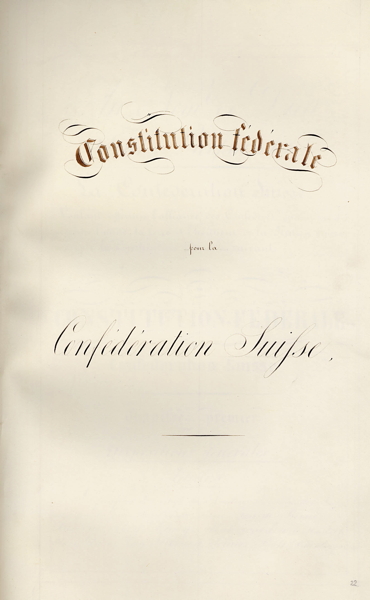 Constitution fédérale
pour la
Confédération Suiſse.
22